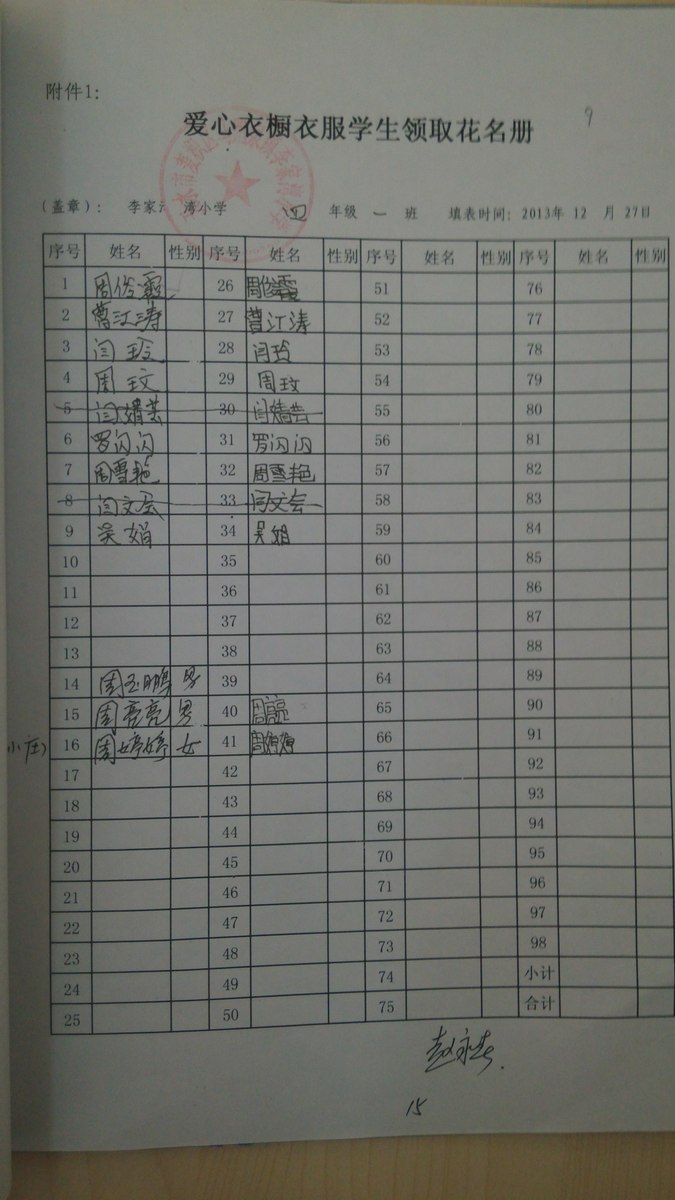 附件1:
9
爱心衣橱衣服学生领取花名册
(盖章): 李家 湾小学 四 年级 一 班 填表时间: 2013年 12 月 27日
序号 姓名 性别 序号 姓名 性别 序号 姓名 性别 序号 姓名 性别
1 周俊霞 26 周俊霞 51 76
2 曹江涛 27 曹江涛 52 77
3 闫玲 28 闫玲 53 78
4 周玟 29 周玟 54 79
5 闫婧芸 30 闫婧芸 55 80
6 罗闪闪 31 罗闪闪 56 81
7 周雪艳 32 周雪艳 57 82
8 闫文会 33 闫文会 58 83
9 吴娟 34 吴娟 59 84
10 35 60 85
11 36 61 86
12 37 62 87
13 38 63 88
14 周玉鹏 男 39 64 89
15 周亮亮 男 40 周亮亮 65 90
小庄) 16 周婷婷 女 41 周婷婷 66 91
17 42 67 92
18 43 68 93
19 44 69 94
20 45 70 95
21 46 71 96
22 47 72 97
23 48 73 98
24 49 74 小计
25 50 75 合计
赵永春
15